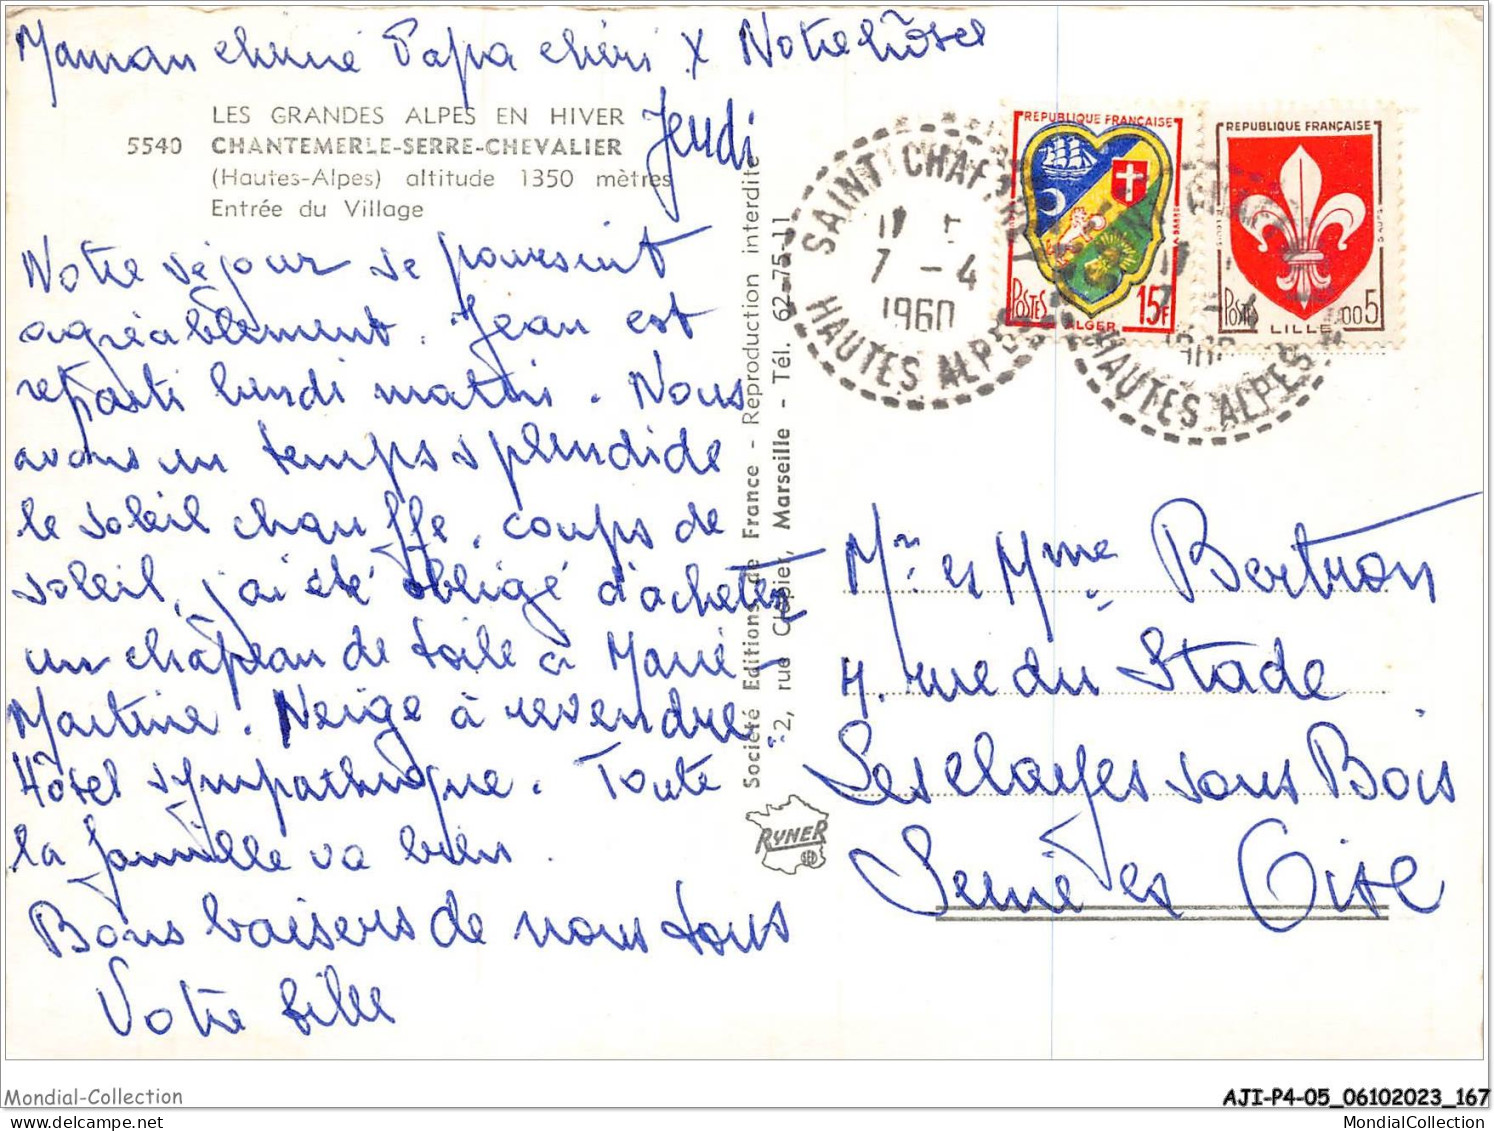 Maman chérie Papa chéri X Notre hôtel
Jeudi
LES GRANDES ALPES EN HIVER
5540 CHANTEMERLE-SERRE-CHEVALIER
(Hautes-Alpes) altitude 1350 mètres
Entrée du Village
Notre séjour se poursuit
agréablement. Jean est
reparti lundi matin. Nous
avons un temps splendide
le soleil chauffe, coups de
soleil, j'ai été obligé d'acheter
un châpeau de toile à Marie-
Martine. Neige à revendre.
Hôtel sympathique. Toute
la famille va bien.
Bons baisers de nous tous
Votre fille
Société Editions de France - Reproduction interdite
2, rue Clapier, Marseille - Tél. 62-75-11
RYNER
SEF
SAINT CHAFFREY
7 - 4
1960
HAUTES ALPES
REPUBLIQUE FRANÇAISE
POSTES
ALGER
15F
REPUBLIQUE FRANÇAISE
POSTES
LILLE
0,05
HAUTES ALPES
Mr et Mme Bertron
4. rue du Stade
Les Clayes sous Bois
Seine et Oise
Mondial-Collection
AJI-P4-05_06102023_167
MondialCollection